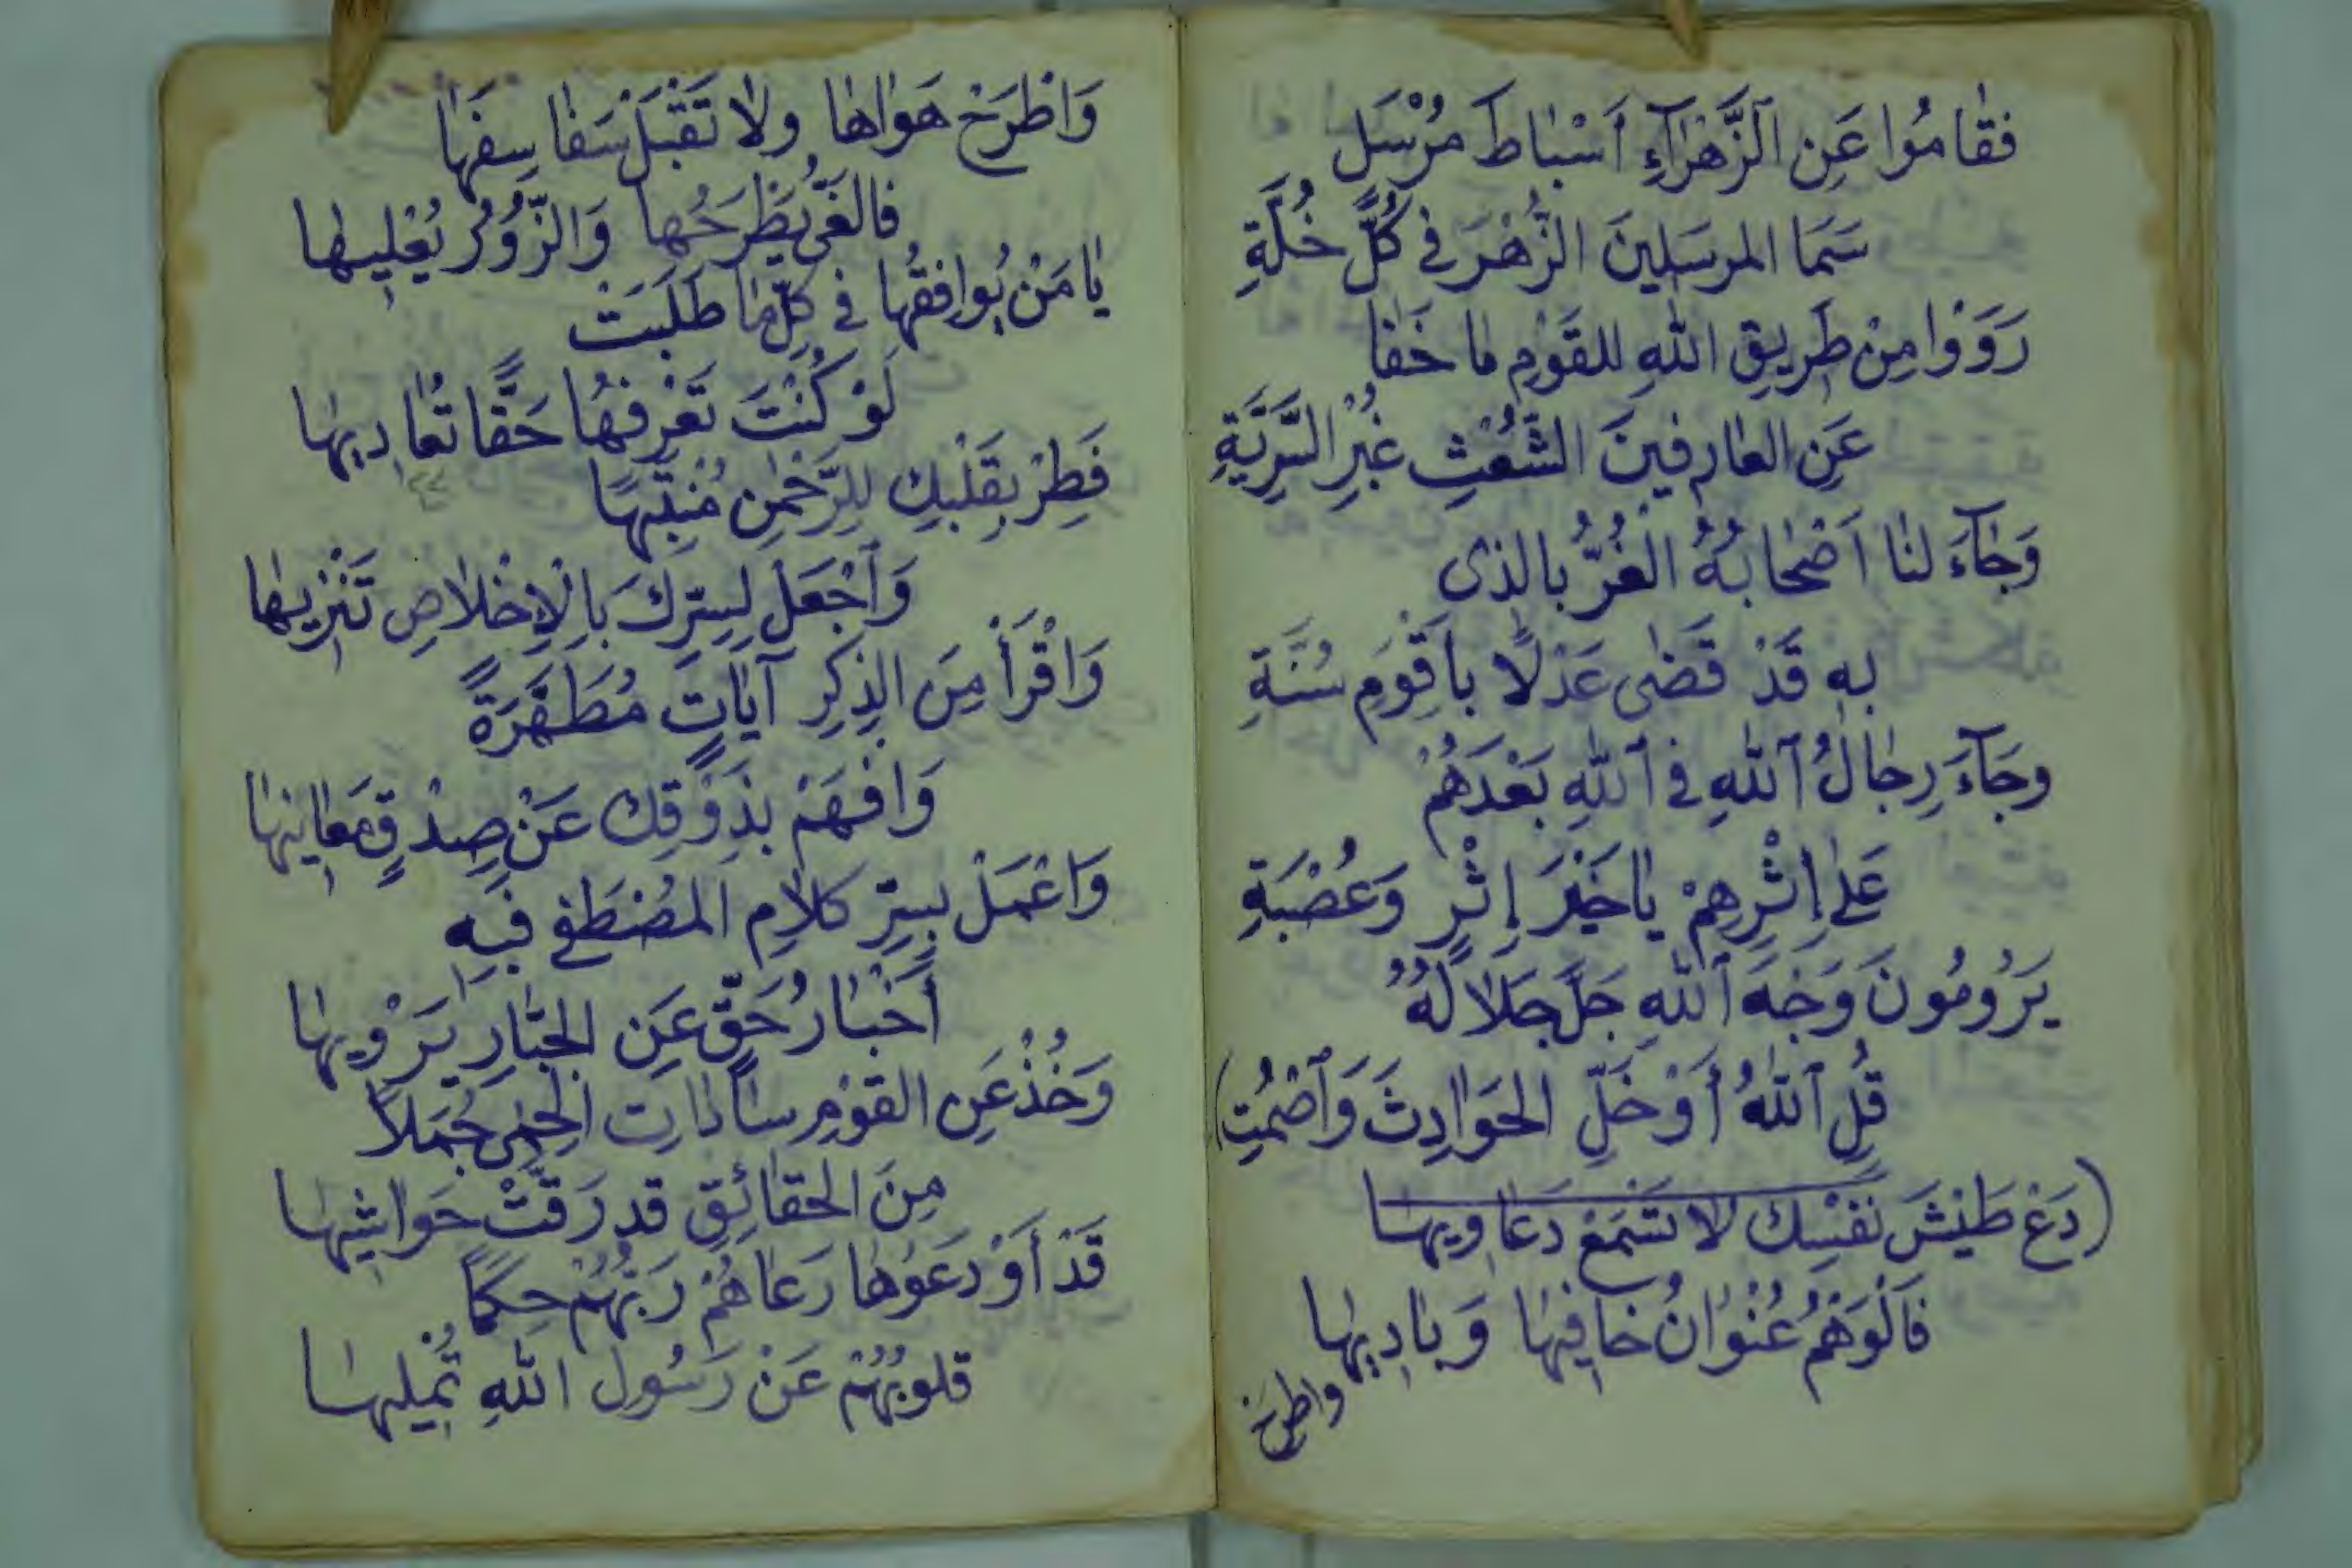 فقامُوا عَنِ الزَّهْرَاءِ أَسْبَاطَ مُرْسَلٍ
سَمَا المرسَلينَ الزُّهْرَ في كُلِّ خُلَّةِ
رَوَوْا مِنْ طَرِيقِ اللهِ للقَوْمِ ما خَفَا
عَنِ العارِفينَ الشُّعْثِ غُبْرِ السَّرِيَّةِ
وَجَآءَ لنا أَصْحَابُهُ الغُرُّ بالذى
بهِ قَدْ قَضَى عَدْلاً بأَقْوَمِ سُنَّةِ
وجَآءَ رِجَالُ اللهِ في اللهِ بَعْدَهُمْ
عَلى إِثْرِهِمْ يَا خَيْرَ إِثْرٍ وَعُصْبَةِ
يَرُومُونَ وَجْهَ اللهِ جَلَّ جَلَالُهُ
قُلِ اللهُ أَوْ خَلِّ الحَوَادِثَ وَاصْمُتِ)
(دَعْ طَيْشَ نَفْسِكَ لا تَسْمَعْ دَعَاوِيها
فَالْوَهْمُ عُنْوَانُ خَافِيهَا وَبَادِيهَا
واطرح
وَاطْرَحْ هَوَاهَا ولا تَقْبَلْ سَفَاسِفَهَا
فالغَيُّ يَطْرَحُها وَالزُّورُ يُعْلِيهَا
يَا مَنْ يُوافِقُهَا في كلِّ مَا طَلَبَتْ
لَوْ كُنْتَ تَعْرِفُهَا حَقًّا تُعَادِيهَا
فَطِرْ بِقَلْبِكَ لِلرَّحْمٰنِ مُنْتَبِهًا
وَاجْعَلْ لِسِرِّكَ بِالْإِخْلَاصِ تَنْزِيهَا
وَاقْرَأْ مِنَ الذِكِرِ آيَاتٍ مُطَهَّرَةً
وَافْهَمْ بِذَوْقِكَ عَنْ صِدْقٍ مَعَانِيهَا
وَاعْمَلْ بِسِرِّ كلَامِ المُصْطَفى فَبِهِ
أَخْبَارُ حَقٍّ عَنِ الجَبَّارِ يَرْوِيهَا
وَخُذْ عَنِ القَوْمِ سَادَاتِ الحِمَى جُمَلاً
مِنَ الحَقَائِقِ قد رَقَّتْ حَوَاشِيهَا
قَدْ أَوْدَعَوْهَا رَعَاهُمْ رَبُّهُمْ حِكَمًا
قلوبُهُمْ عَنْ رَسُولِ اللهِ تُمْلِيهَا